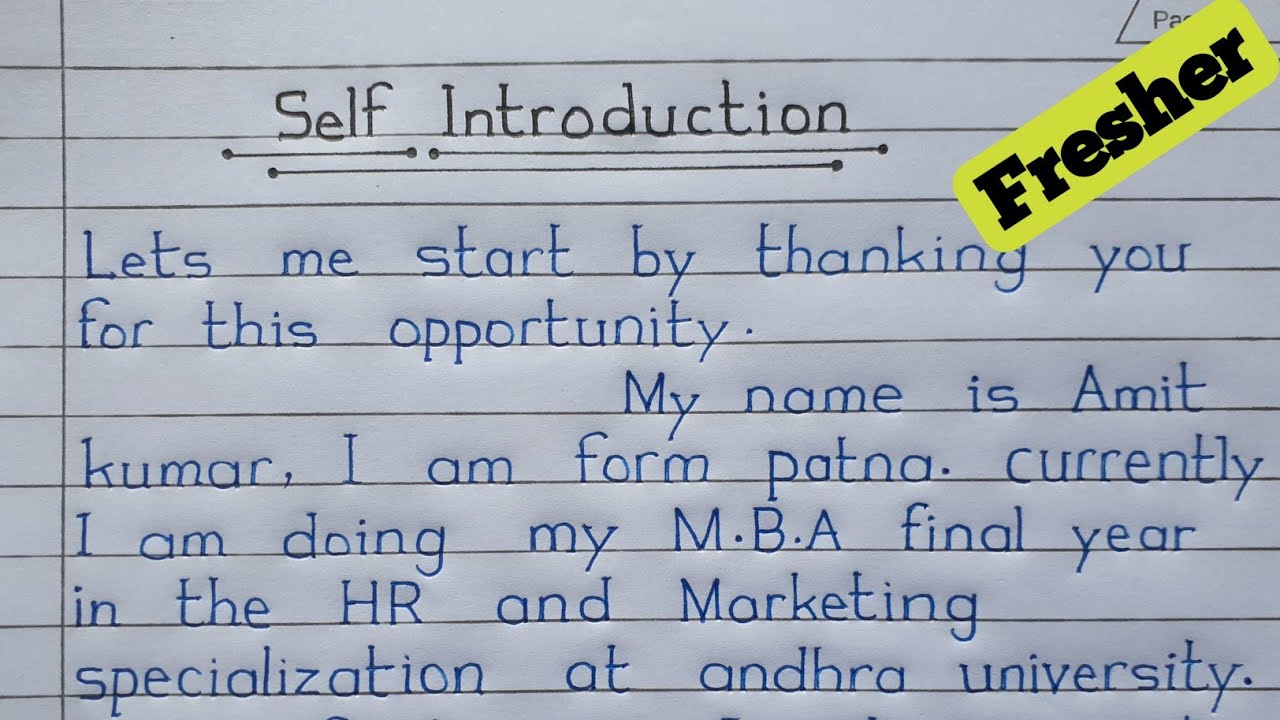 Fresher
Self Introduction
Lets me start by thanking you
for this opportunity.
My name is Amit
kumar, I am form patna. currently
I am doing my M.B.A final year
in the HR and Marketing
specialization at andhra university.